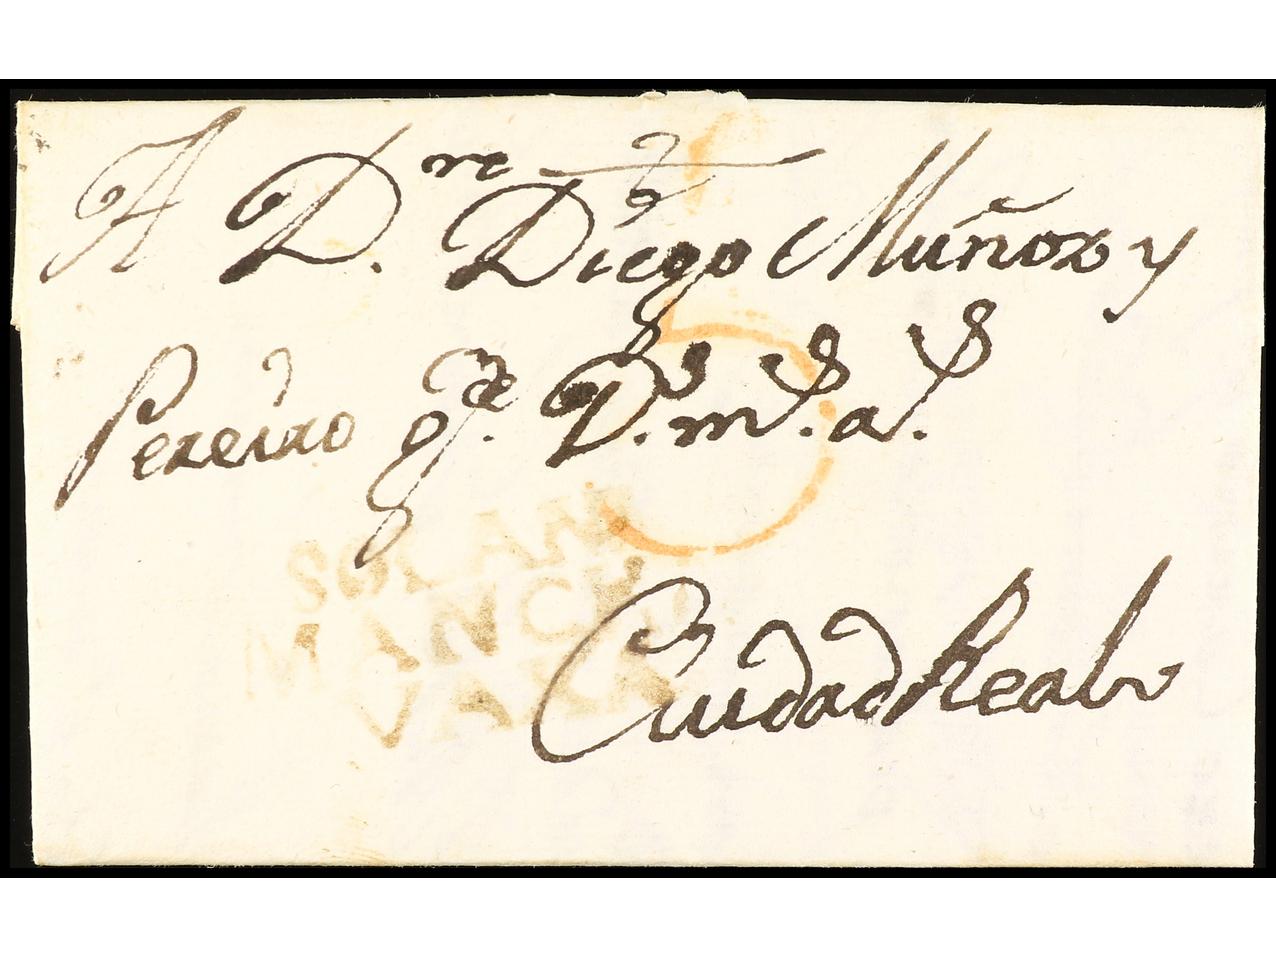 A D.re Diego Muñoz y
Pereiro g.e D.s m.s a.s
5
SOLAN
MANCHA
VAXA
Ciudad Real